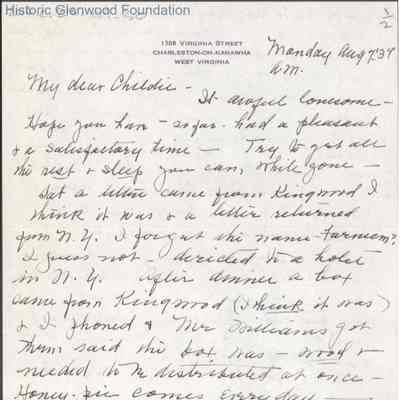 Historic Glenwood Foundation
1/2
1308 Virginia Street
Charleston-on-Kanawha
West Virginia
Monday Aug 7, 39
A.M.
My dear Childie -
It awful lonesome -
Hope you have - so far - had a pleasant
& a satisfactory time - Try to get all
the rest & sleep you can, while gone -
Sat a letter came from Kingwood I
think it was & a letter returned
from N.Y. I forget the name
I guess not - directed to a hotel
in N.Y. After dinner a box
came from Kingwood (I think it was)
& I phoned & Mr Williams got
them said the box was - wood &
needed to be distributed at once -
Honey-pie comes everyday -